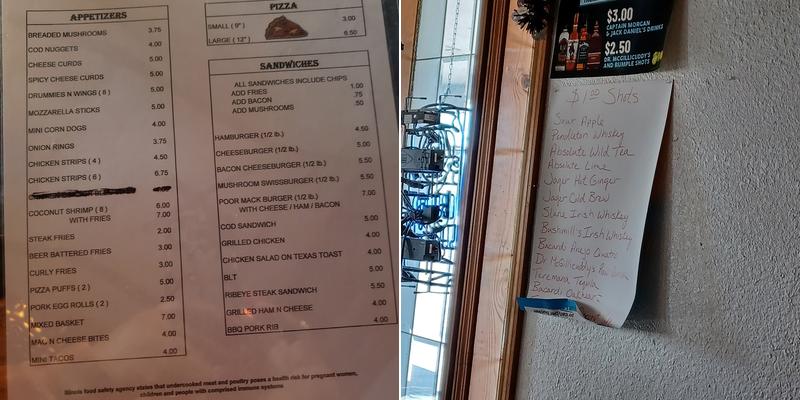 APPETIZERS
BREADED MUSHROOMS 3.75
COD NUGGETS 4.00
CHEESE CURDS 5.00
SPICY CHEESE CURDS 5.00
DRUMMIES N WINGS ( 8 ) 5.00
MOZZARELLA STICKS 5.00
MINI CORN DOGS 4.00
ONION RINGS 3.75
CHICKEN STRIPS ( 4 ) 4.50
CHICKEN STRIPS ( 6 ) 6.75
COCONUT SHRIMP ( 8 ) 6.00
WITH FRIES 7.00
STEAK FRIES 2.00
BEER BATTERED FRIES 3.00
CURLY FRIES 3.00
PIZZA PUFFS ( 2 ) 5.00
PORK EGG ROLLS ( 2 ) 2.50
MIXED BASKET 7.00
MAC N CHEESE BITES 4.00
MINI TACOS 4.00
PIZZA
SMALL ( 9" ) 3.00
LARGE ( 12" ) 6.50
SANDWICHES
ALL SANDWICHES INCLUDE CHIPS
ADD FRIES 1.00
ADD BACON .75
ADD MUSHROOMS .50
HAMBURGER (1/2 lb.) 4.50
CHEESEBURGER (1/2 lb.) 5.00
BACON CHEESEBURGER (1/2 lb.) 5.50
MUSHROOM SWISSBURGER (1/2 lb.) 5.50
POOR MACK BURGER (1/2 lb.) 7.00
WITH CHEESE / HAM / BACON
COD SANDWICH 5.00
GRILLED CHICKEN 4.00
CHICKEN SALAD ON TEXAS TOAST 4.00
BLT 5.00
RIBEYE STEAK SANDWICH 5.50
GRILLED HAM N CHEESE 4.00
BBQ PORK RIB 4.00
Illinois food safety agency states that undercooked meat and poultry poses a health risk for pregnant women,
children and people with comprised immune systems
$3.00
CAPTAIN MORGAN
& JACK DANIEL'S DRINKS
$2.50
DR. MCGILLICUDDY'S
AND RUMPLE SHOTS
$1.00 Shots
Sour Apple
Pendleton Whisky
Absolute Wild Tea
Absolute Lime
Jager Hot Ginger
Jager Cold Brew
Slane Irish Whiskey
Bushmill's Irish Whiskey
Bacardi Anejo
Dr McGillicuddy's
Teremana Tequila
Bacardi